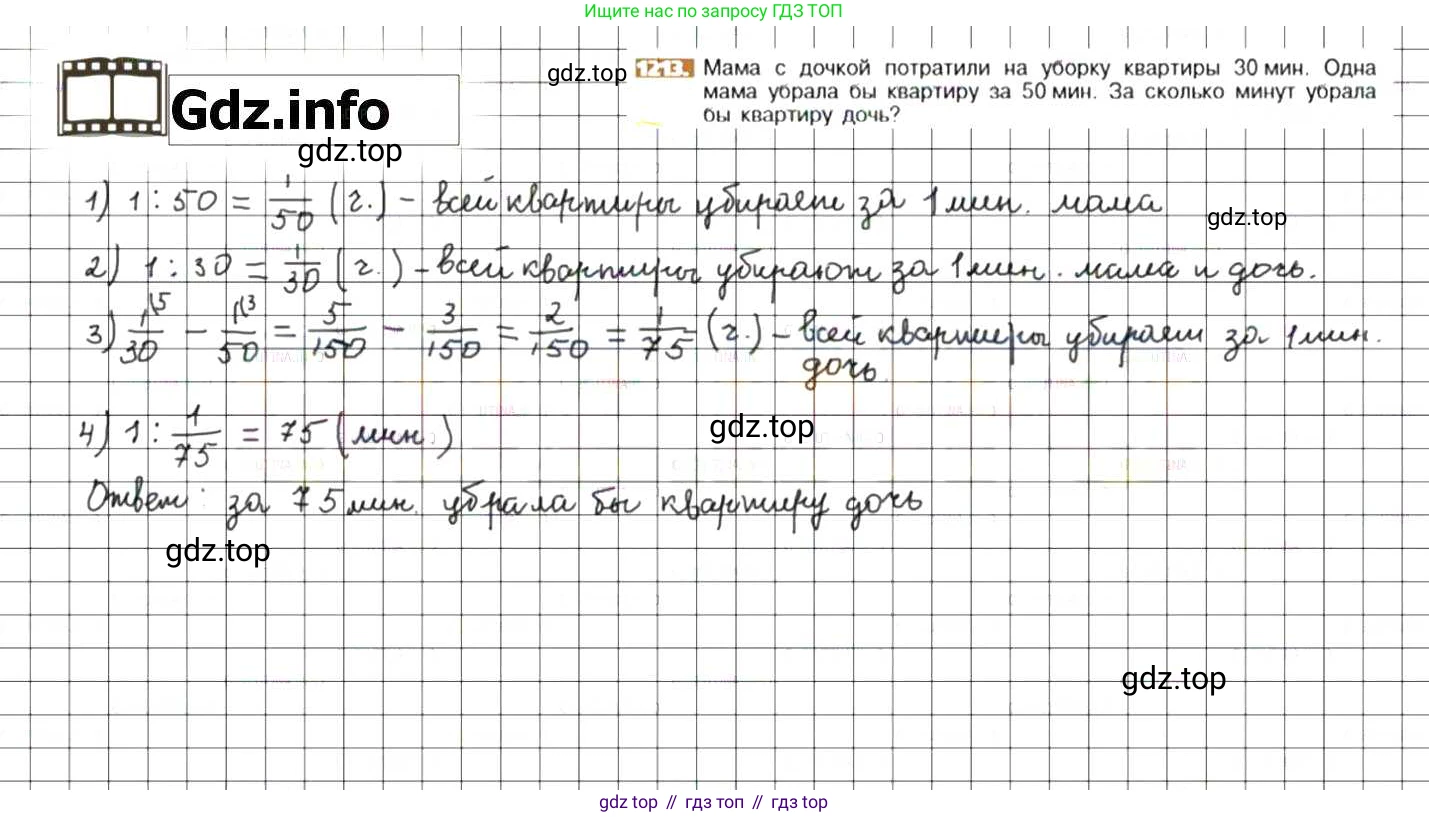 Ищите нас по запросу ГДЗ ТОП
Gdz.info
gdz.top
gdz.top
1213. Мама с дочкой потратили на уборку квартиры 30 мин. Одна
мама убрала бы квартиру за 50 мин. За сколько минут убрала
бы квартиру дочь?
1) 1 : 50 = 1/50 (ч.) – всей квартиры убирает за 1 мин. мама
gdz.top
2) 1 : 30 = 1/30 (ч.) – всей квартиры убирают за 1 мин. мама и дочь.
3) 1\5/30 – 1\3/50 = 5/150 – 3/150 = 2/150 = 1/75 (ч.) – всей квартиры убирает за 1 мин.
дочь.
4) 1 : 1/75 = 75 (мин.)
gdz.top
Ответ: за 75 мин. убрала бы квартиру дочь
gdz.top
gdz.top
gdz top // гдз топ // gdz top